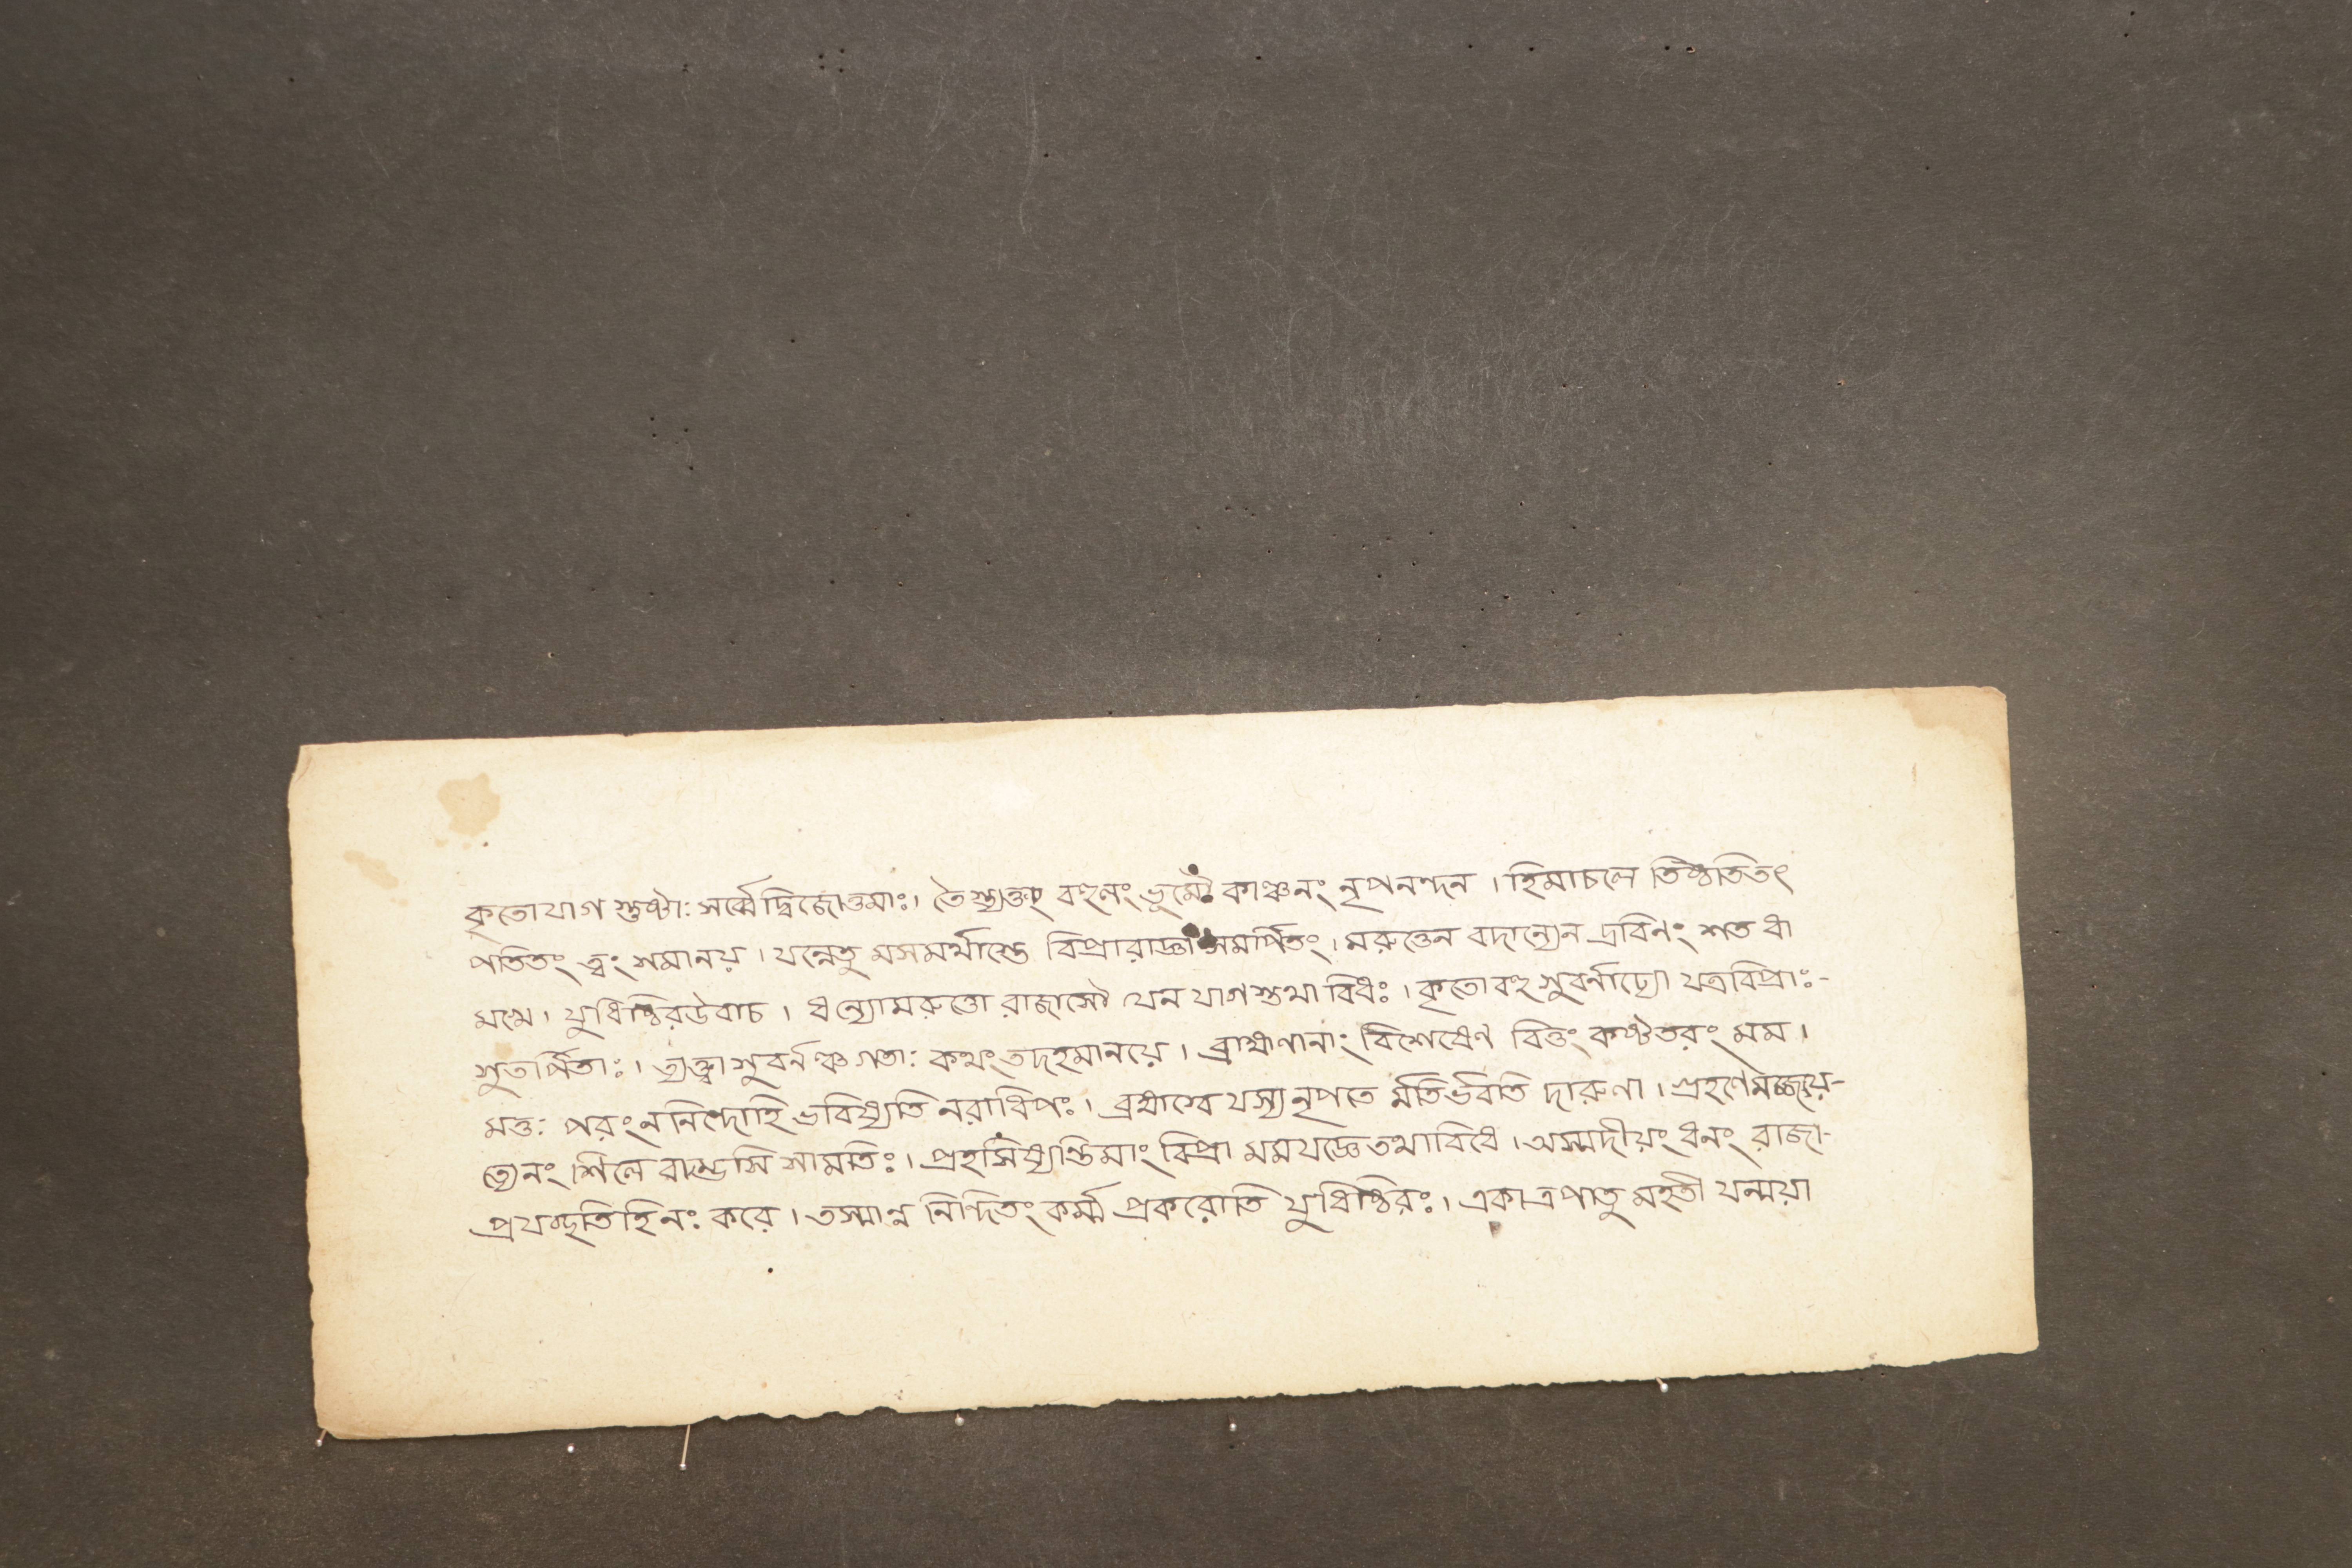 কৃতোযাগ স্তুষ্টাঃ সর্ব্বেদ্বিজোত্তমাঃ। তৈস্ত্যক্তং বহুলং ভূমৌ কাঞ্চনং নৃপনন্দন । হিমাচলে তিষ্ঠতিতৎ
পতিতং ত্বং শমানয় । যন্নেতু মসমর্থাস্তে বিপ্রারাজ্ঞা সমর্পিতং । মরুত্তেন বদান্যেন দ্রবিনং শত ধা
মখে । যুধিষ্ঠিরউবাচ । ধন্যোমরুত্তো রাজাসৌ যেন যাগস্তথা বিধঃ । কৃতো বহু সুবর্নাঢ্যো যত্রবিপ্রাঃ-
সুতর্পিতাঃ । ত্যক্ত্বা সুবর্নঞ্চ গতাঃ কথং তদহমানয়ে । ব্রাহ্মণানাং বিশেষেণ বিত্তং কষ্টতরং মম ।
মত্তঃ পরং ননিন্দোহি ভবিষ্যতি নরাধিপঃ । ব্রহ্মস্বে যস্য নৃপতে র্মতির্ভবতি দারুণা । গ্রহণে মজ্জয়ে-
ত্যেনং শিলে বাম্ভসি সামতিঃ । প্রহসিষ্যন্তিমাং বিপ্রা মমযজ্ঞে তথাবিধে । অস্মদীয়ং ধনং রাজা-
প্রযচ্ছতিহিনঃ করে । তস্মান্ন নিন্দিতং কর্ম্ম প্রকরোতি যুধিষ্ঠিরঃ । একাত্রপাতু মহতী যন্ময়া